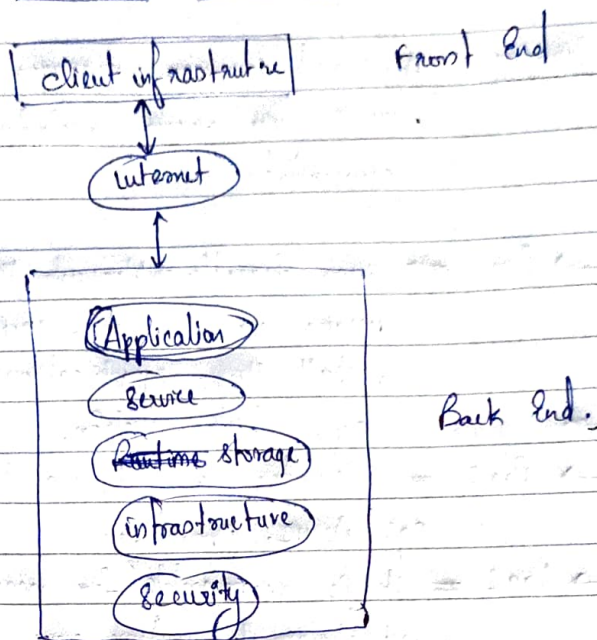 client infrastrutre Front End
Internet
Application
Service
Back End.
Runtime storage
infrastructure
Security